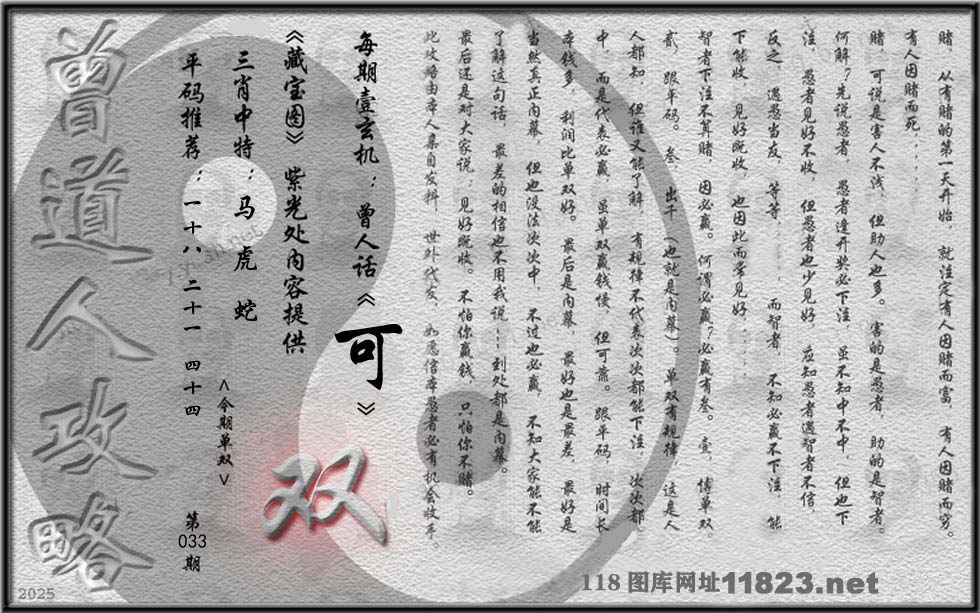 赌，从有赌的第一天开始，就注定有人因赌而富，有人因赌而穷。
有人因赌而死．．．．．．
赌，可说是害人不浅，但助人也多。害的是愚者，助的是智者。
何解？先说愚者，愚者逢开奖必下注，虽不知中不中，但也下
注，愚者见好不收，但愚者也少见好，应知愚者遇智者不信，
反之，遇愚当友，等等．．．．．．而智者，不知必赢不下注，能
下能收，见好既收，也因此而常见好．．．．．．
智者下注不算赌，因必赢。何谓必赢？必赢有叁。壹，博单双，
贰，跟平码。叁，出千（也就是内幕）。单双有规律，这是人
人都知，但谁又能了解，有规律不代表次次都能下注，次次都
中，而是代表必赢，虽单双赢钱慢，但可靠。跟平码，时间长
本钱多，利润比单双好。最后是内幕，最好也是最差，最好是
当然真正内幕，但也没法次次中，不过也必赢，不知大家能不能
了解这句话，最差的相信也不用我说┅到处都是内幕。
最后还是对大家说：见好既收。不怕你赢钱，只怕你不赌。
此攻略由本人集自发料，世外代友，如愿信本愚者必有机会收手。
每期壹玄机：曾人话《可》
《藏宝图》紫光处内容提供
三肖中特：马 虎 蛇
平码推荐：一十八 二十一 四十四
<今期单双>
双
第033期
曾道人攻略
2025
118图库网址11823.net